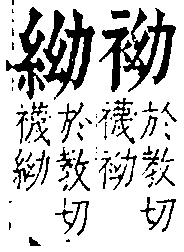 袎
於教切
襪袎
䋂
於教切
襪䋂